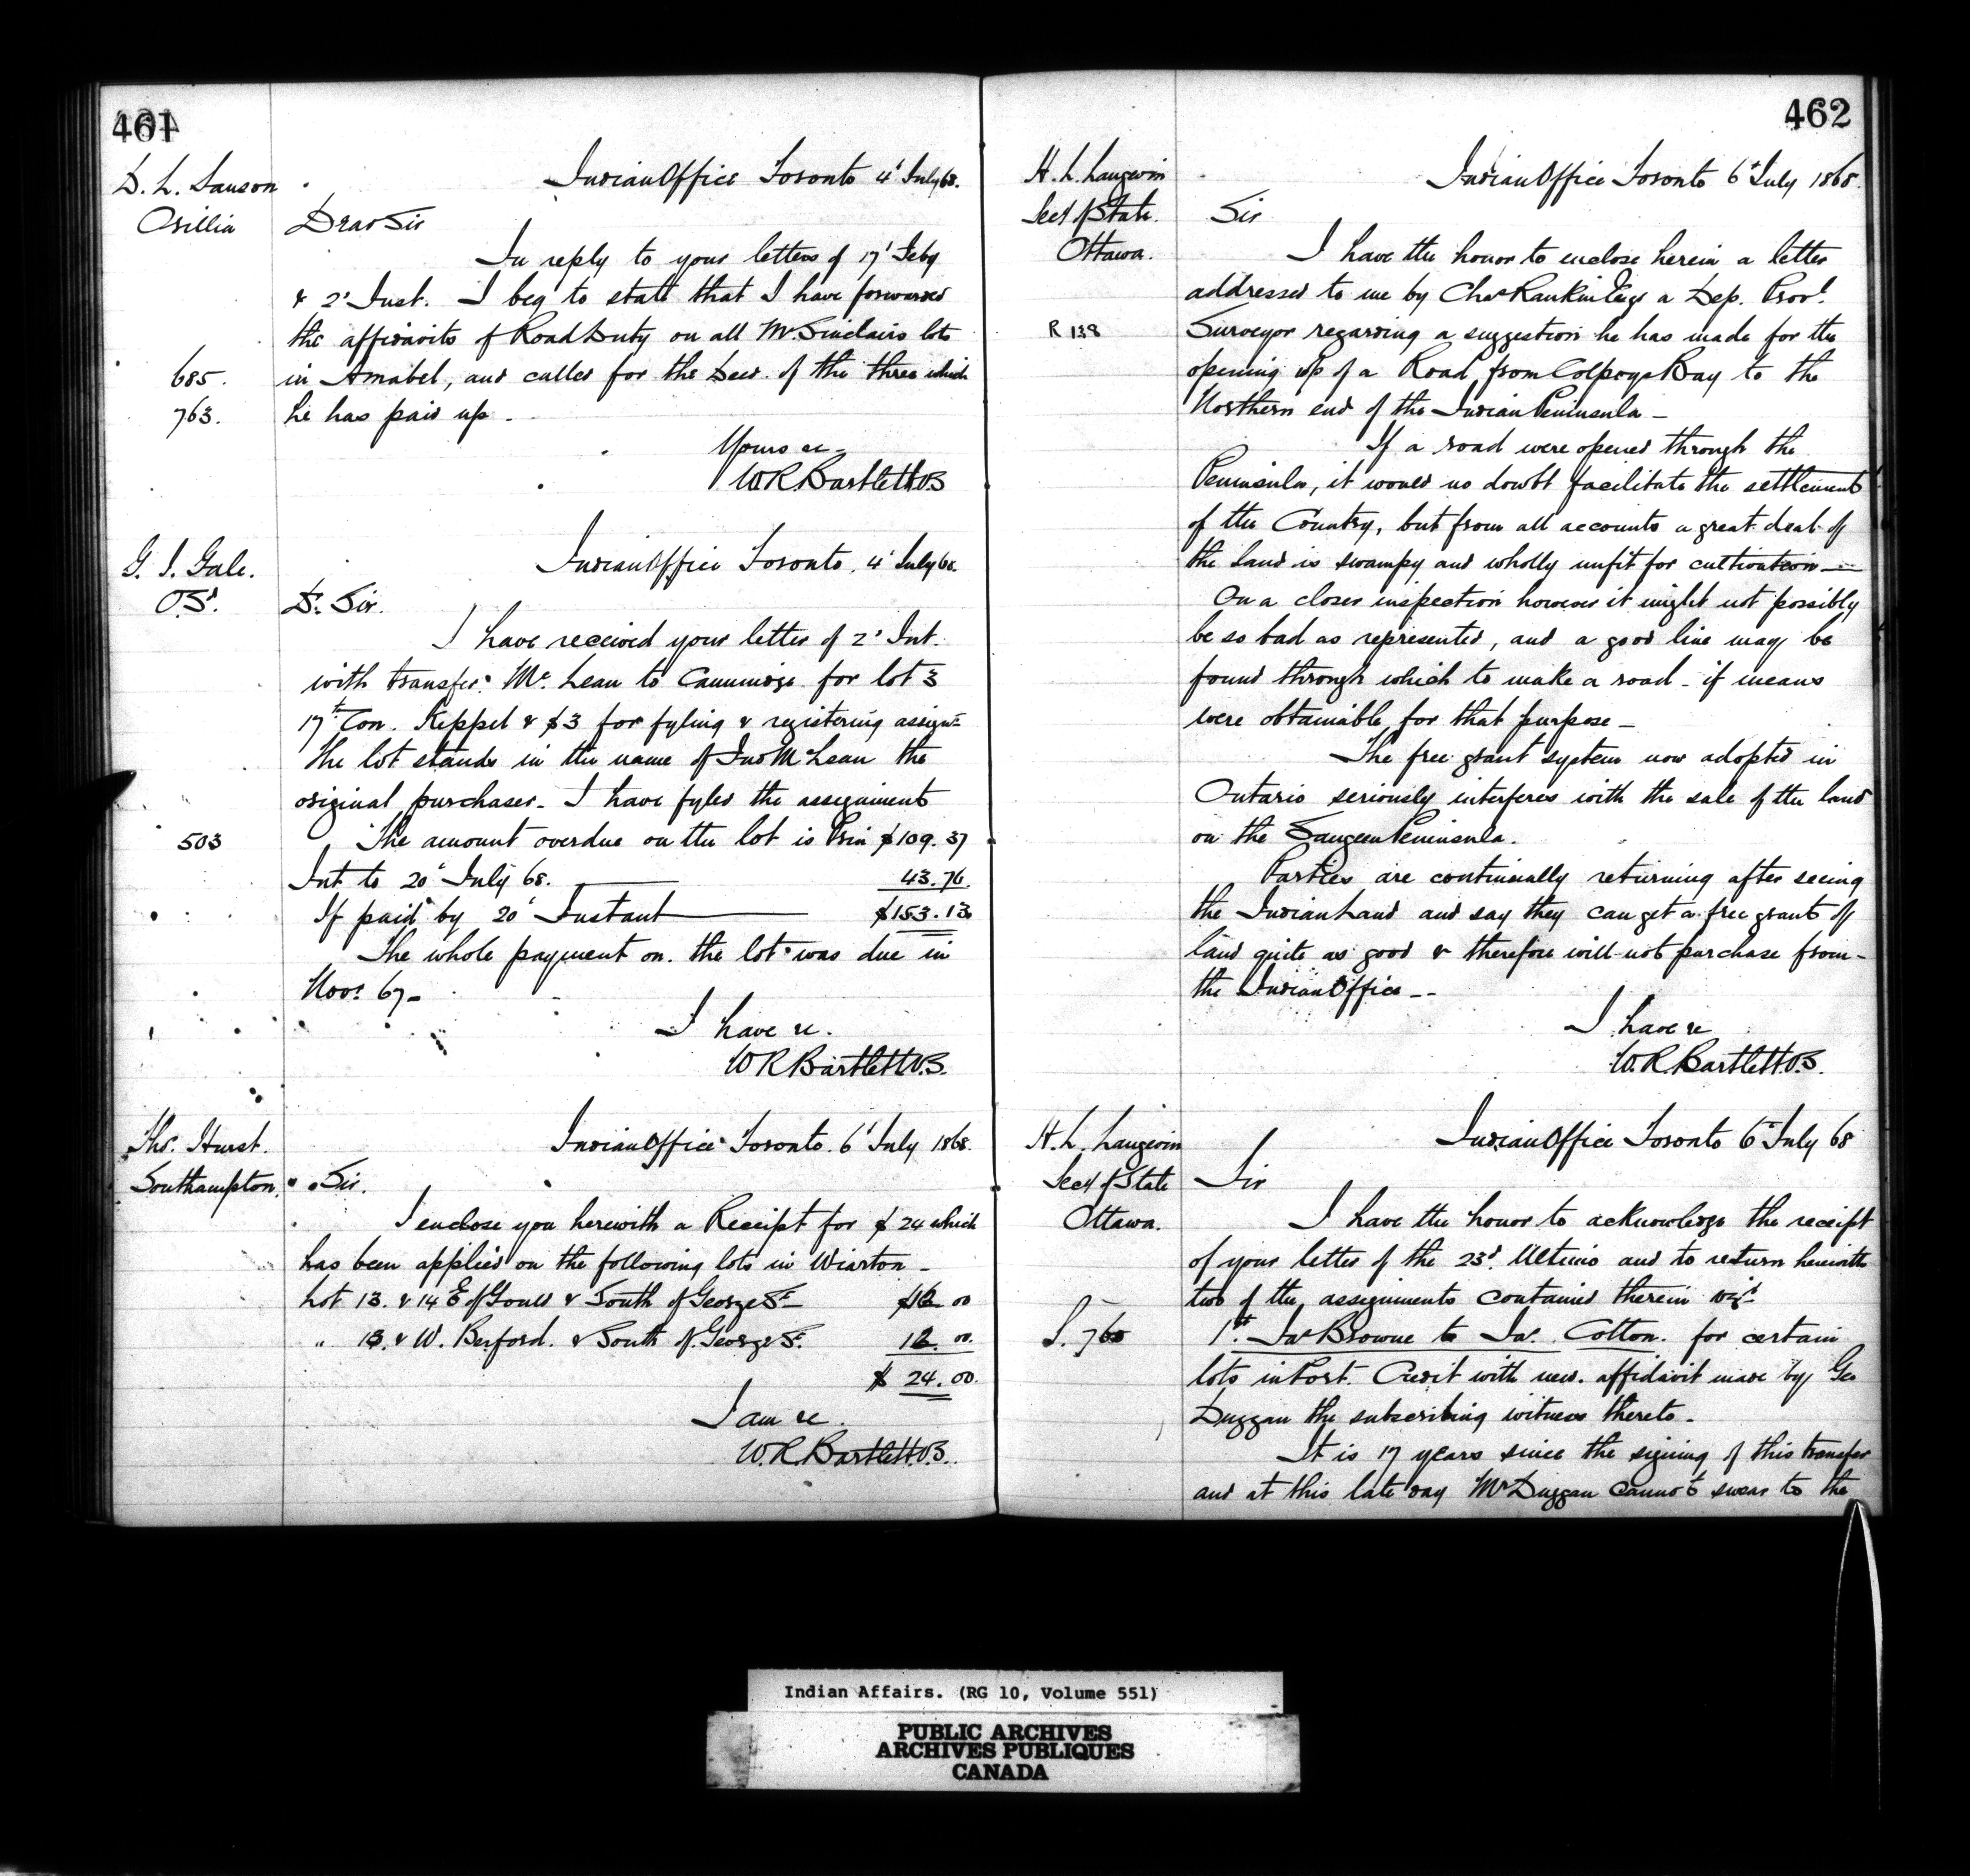 461
D. L. Sanson
Orillia
Indian Office Toronto 4' July 68.
Dear Sir
In reply to your letters of 17' Feby
& 2' Inst. I beg to state that I have forwarded
the affidavits of Road Duty on all Mr. Sinclairs lots
685. in Amabel, and called for the Deed. of the three which
763. he has paid up.
Yours &c
W.R. Bartlett V.S
G. J. Gale.
O.S'.
Indian Office Toronto. 4' July 68.
Dr. Sir.
I have received your letter of 2' Int.
with transfer. Mc. Lean to Cammidge for lot 3
17th Con. Keppel & $3 for fyling & registering assignt
The lot stands in the name of Jno McLean the
original purchaser. I have fyled the assignment
503 The amount overdue on the lot is Prin $109.37
Int to 20' July 68. 43.76
If paid by 20' Instant $153.13
The whole payment on the lot was due in
Novr 67 -
I have &c.
W R Bartlett V.S.
Thos. Hurst.
Southampton.
Indian Office Toronto. 6' July 1868.
Sir.
I enclose you herewith a Receipt for $24 which
has been applied on the following lots in Wiarton -
Lot 13. & 14 E of Gould & South of George St $12 00
" 13. & W. Berford. & South of George St. 12. 00.
$ 24.00.
I am &c.
W.R. Bartlett V.S.
462
H. L. Langevin
Secy of State.
Ottawa.
Indian Office Toronto 6' July 1868.
Sir
I have the honor to enclose herein a letter
addressed to me by Chas Rankin Esqr a Dep. Provl.
R 138 Surveyor regarding a suggestion he has made for the
opening up of a Road from Colpoys Bay to the
Northern end of the Indian Peninsula -
If a road were opened through the
Peninsula, it would no doubt facilitate the settlement
of the Country, but from all accounts a great deal of
the Land is swampy and wholly unfit for cultivation -
On a closer inspection however it might not possibly
be so bad as represented, and a good line may be
found through which to make a road - if means
were obtainable for that purpose -
The free grant system now adopted in
Ontario seriously interferes with the sale of the land
on the Saugeen Peninsula.
Parties are continually returning after seeing
the Indian Land and say they can get a free grant of
land quite as good & therefore will not purchase from -
the Indian Office --
I have &c
W.R. Bartlett V.S.
H. L. Langevin
Secy of State
Ottawa.
Indian Office Toronto 6' July 68
Sir
I have the honor to acknowledge the receipt
of your letter of the 23d. Ultimo and to return herewith
two of the assignments contained therein vizt
1st. Jas Browne to Jas. Cotton. for certain
lots in Port. Credit with new. affidavit made by Geo
Duggan the subscribing witness thereto -
It is 17 years since the signing of this transfer
and at this late day Mr Duggan cannot swear to the
Indian Affairs. (RG 10, Volume 551)
PUBLIC ARCHIVES
ARCHIVES PUBLIQUES
CANADA